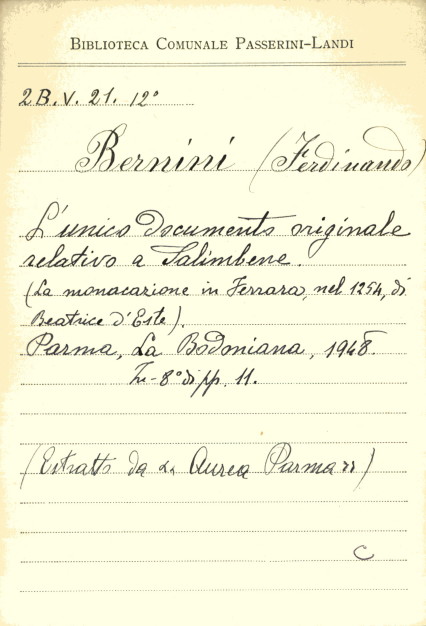 BIBLIOTECA COMUNALE PASSERINI-LANDI
2B.V. 21. 12°
Bernini (Ferdinando)
L'unico documento originale
relativo a Salimbene.
(La monacazione in Ferrara, nel 1254, di
Beatrice d'Este).
Parma, La Bodoniana, 1948.
In-8° di pp. 11.
(Estratto da "Aurea Parma")
C